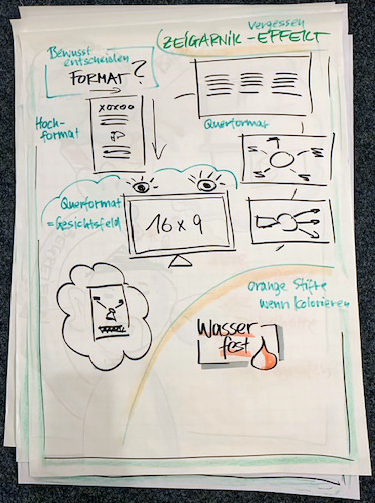 Bewusst
entscheiden
FORMAT?
vergessen
(ZEIGARNIK-EFFEKT
Hoch-
format
XOXOO
Querformat
Querformat
=Gesichtsfeld
16x9
orange Stifte
wenn kolorieren
Wasser
fest